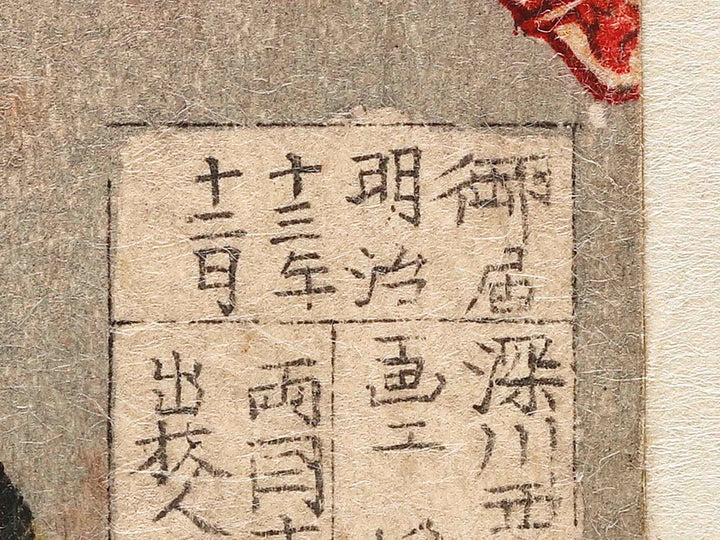 御届
明治
十三年
十二日
深川西
画工
両国吉
出板人